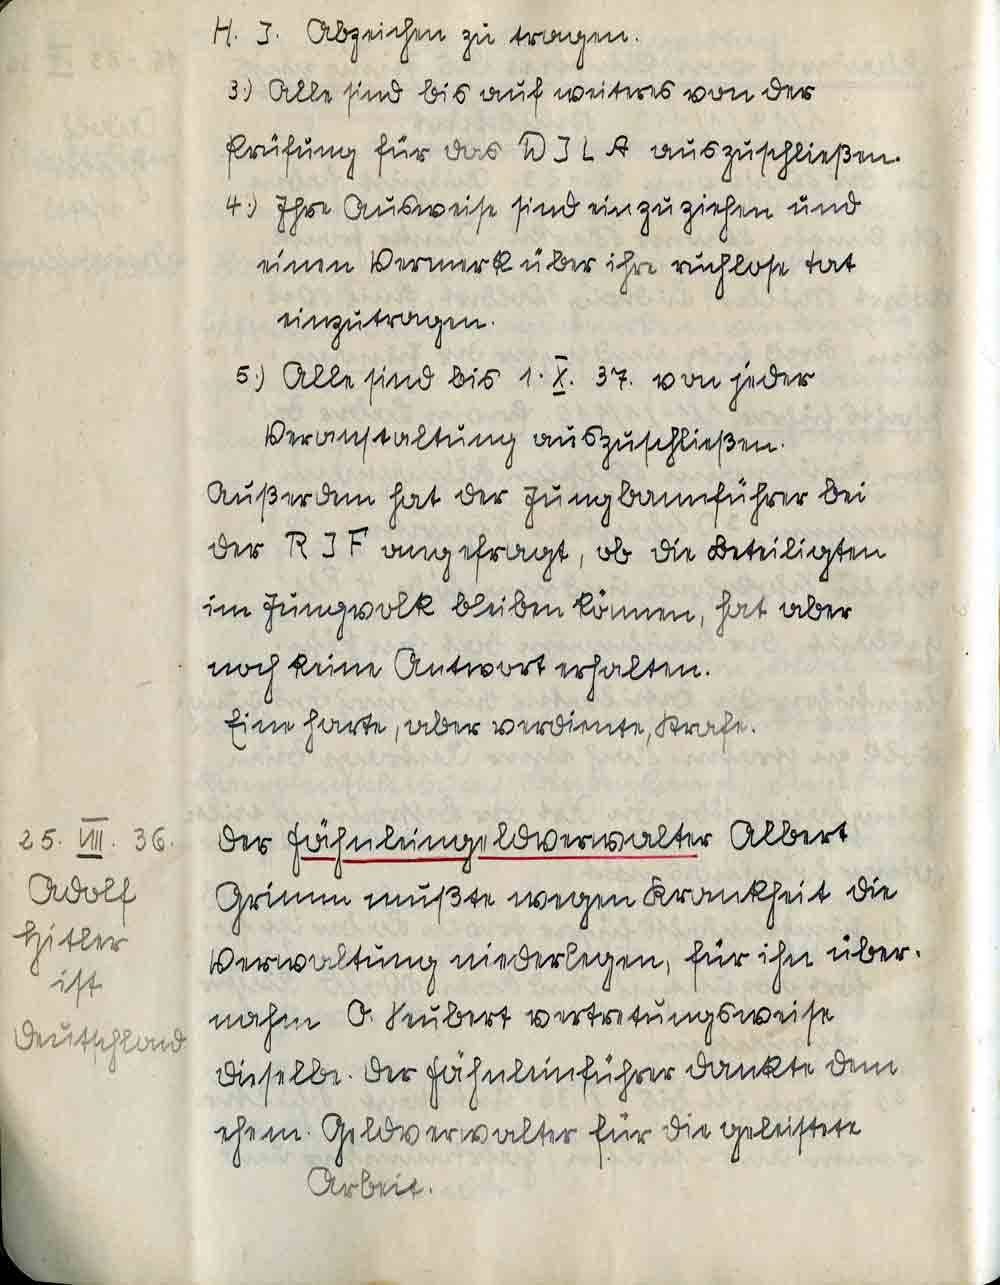 H. J. Abzeichen zu tragen.
3.) Alle sind bis auf weiteres von der
Prüfung für das D J L A auszuschließen.
4.) Ihre Ausweise sind einzuziehen und
einen Vermerk über ihre ruchlose Tat
einzutragen.
5.) Alle sind bis 1. X. 37. von jeder
Veranstaltung auszuschließen.
Außerdem hat der Jungbannführer bei
der R J F angefragt, ob die Beteiligten
im Jungvolk bleiben können, hat aber
noch keine Antwort erhalten.
Eine harte, aber verdiente, Strafe.
25. VIII. 36.
Adolf
Hitler
ist
Deutschland
Der Fähnleingeldverwalter Albert
Grimm mußte wegen Krankheit die
Verwaltung niederlegen, für ihn über-
nahm O. Neubert vertretungsweise
dieselbe. Der Fähnleinführer dankte dem
ehem. Geldverwalter für die geleistete
Arbeit.